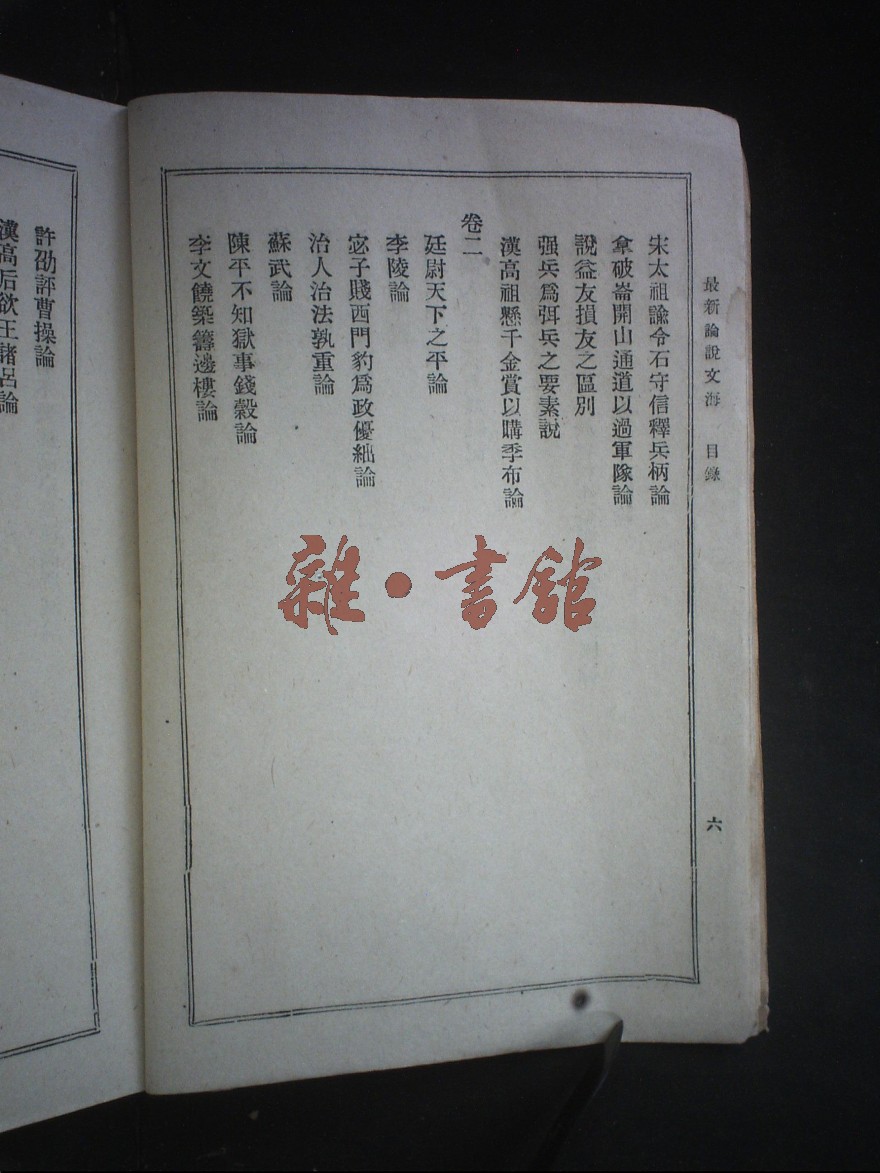 最新論說文海　目錄
六
宋太祖諭令石守信釋兵柄論
拿破崙開山通道以過軍隊論
說益友損友之區別
强兵爲弭兵之要素說
漢高祖懸千金賞以購季布論
卷二
廷尉天下之平論
李陵論
宓子賤西門豹爲政優絀論
治人治法孰重論
蘇武論
陳平不知獄事錢穀論
李文饒築籌邊樓論
許劭評曹操論
漢高后欲王諸呂論
雜·書館